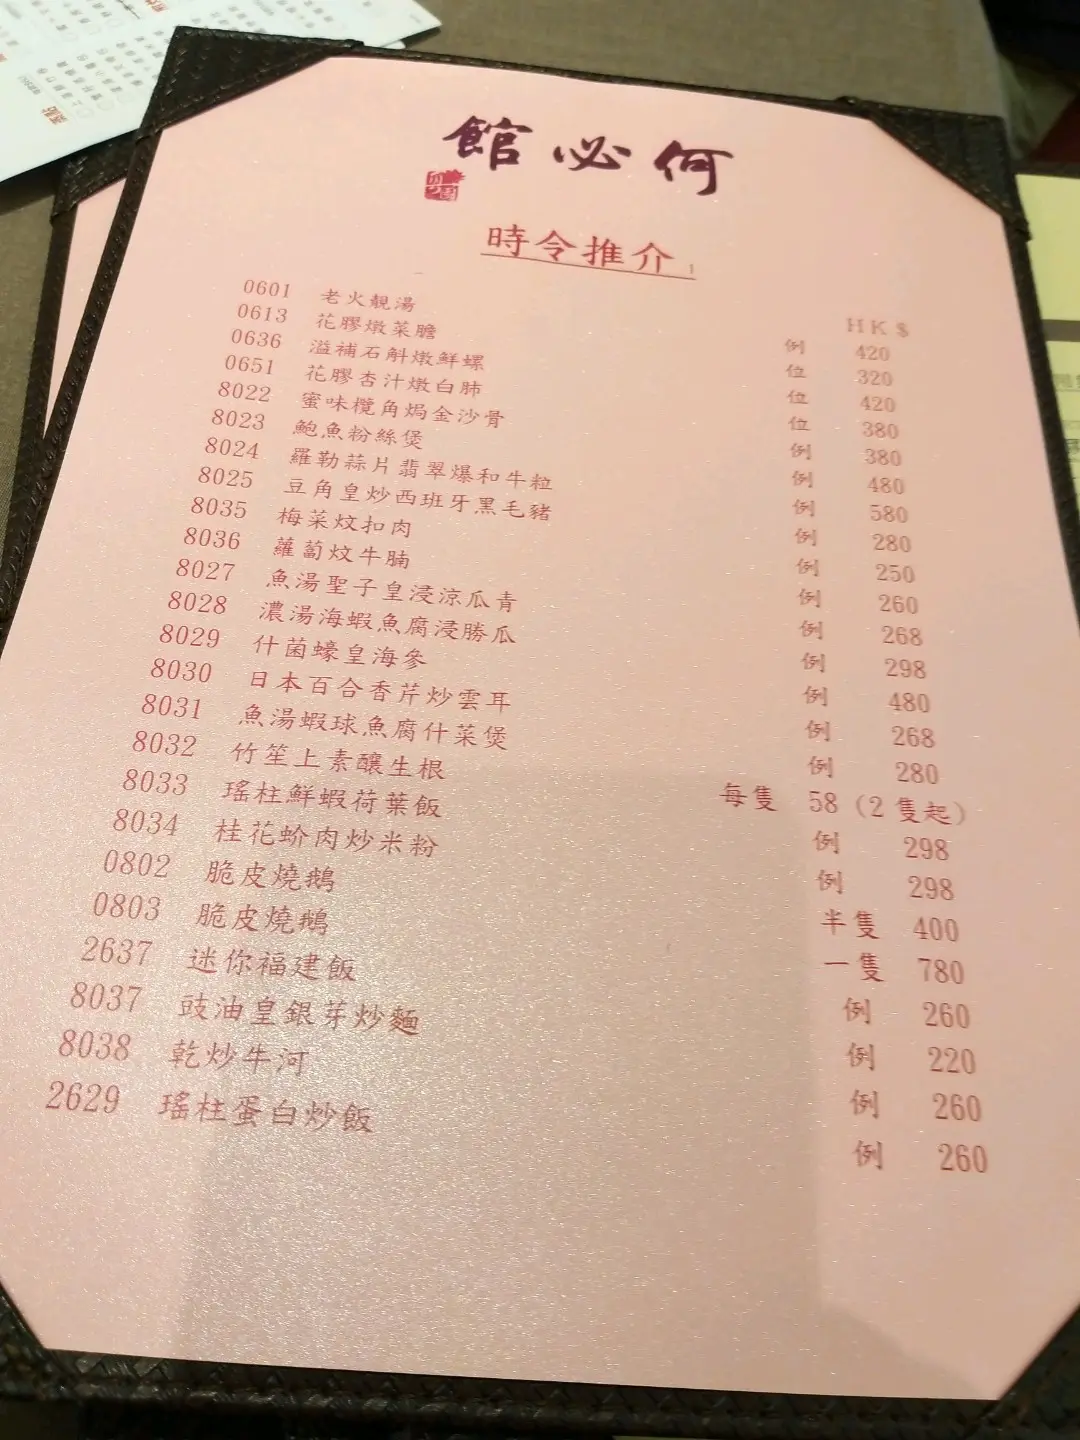 何必館
時令推介
HK$
0601 老火靚湯 例 420
0613 花膠燉菜膽 位 320
0636 溢補石斛燉鮮螺 位 420
0651 花膠杏汁燉白肺 位 380
8022 蜜味欖角焗金沙骨 例 380
8023 鮑魚粉絲煲 例 480
8024 羅勒蒜片翡翠爆和牛粒 例 580
8025 豆角皇炒西班牙黑毛豬 例 280
8035 梅菜炆扣肉 例 250
8036 蘿蔔炆牛腩 例 260
8027 魚湯聖子皇浸涼瓜青 例 268
8028 濃湯海蝦魚腐浸勝瓜 例 298
8029 什菌蠔皇海參 例 480
8030 日本百合香芹炒雲耳 例 268
8031 魚湯蝦球魚腐什菜煲 例 280
8032 竹笙上素釀生根 每隻 58 (2隻起)
8033 瑤柱鮮蝦荷葉飯 例 298
8034 桂花蚧肉炒米粉 例 298
0802 脆皮燒鵝 半隻 400
0803 脆皮燒鵝 一隻 780
2637 迷你福建飯 例 260
8037 豉油皇銀芽炒麵 例 220
8038 乾炒牛河 例 260
2629 瑤柱蛋白炒飯 例 260